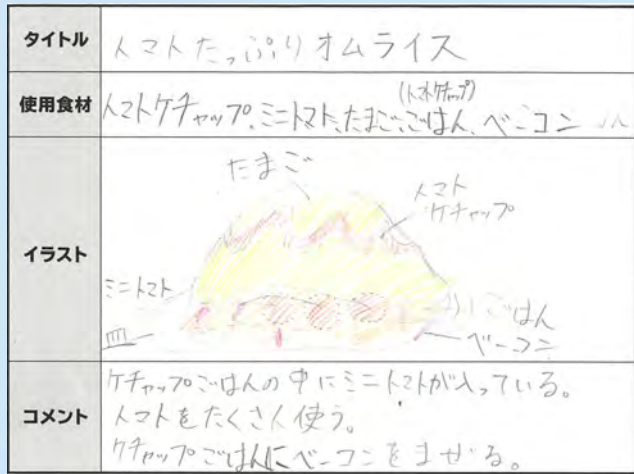 タイトル
トマトたっぷりオムライス
使用食材
(トマトケチャップ)
トマトケチャップ、ミニトマト、たまご、ごはん、ベーコン
イラスト
たまご
トマト
ケチャップ
ミニトマト
皿
ごはん
ベーコン
コメント
ケチャップごはんの中にミニトマトが入っている。
トマトをたくさん使う。
ケチャップごはんにベーコンをまぜる。